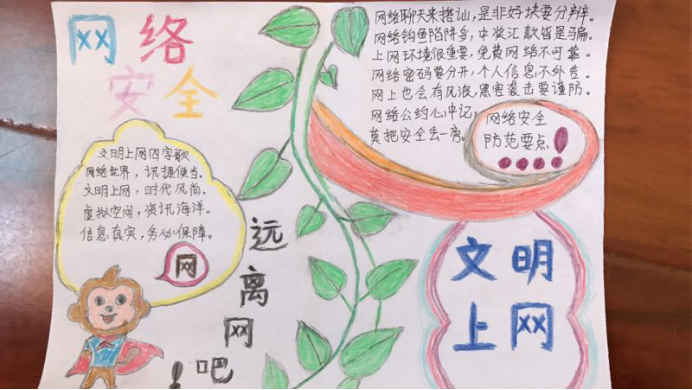 网络
安全
网络聊天来搭讪,是非好坏要分辨。
网络钓鱼陷阱多,中奖汇款皆是骗。
上网环境很重要,免费网络不可靠。
网络密码要分开,个人信息不外告。
网上也会有风浪,黑客袭击要谨防。
网络公约心中记,
莫把安全丢一旁。
网络安全
防范要点
!
文明上网四字歌
网络世界,讯捷便当。
文明上网,时代风尚。
虚拟空间,资讯海洋。
信息真实,务必保障。
网
远离网吧!
文明
上网